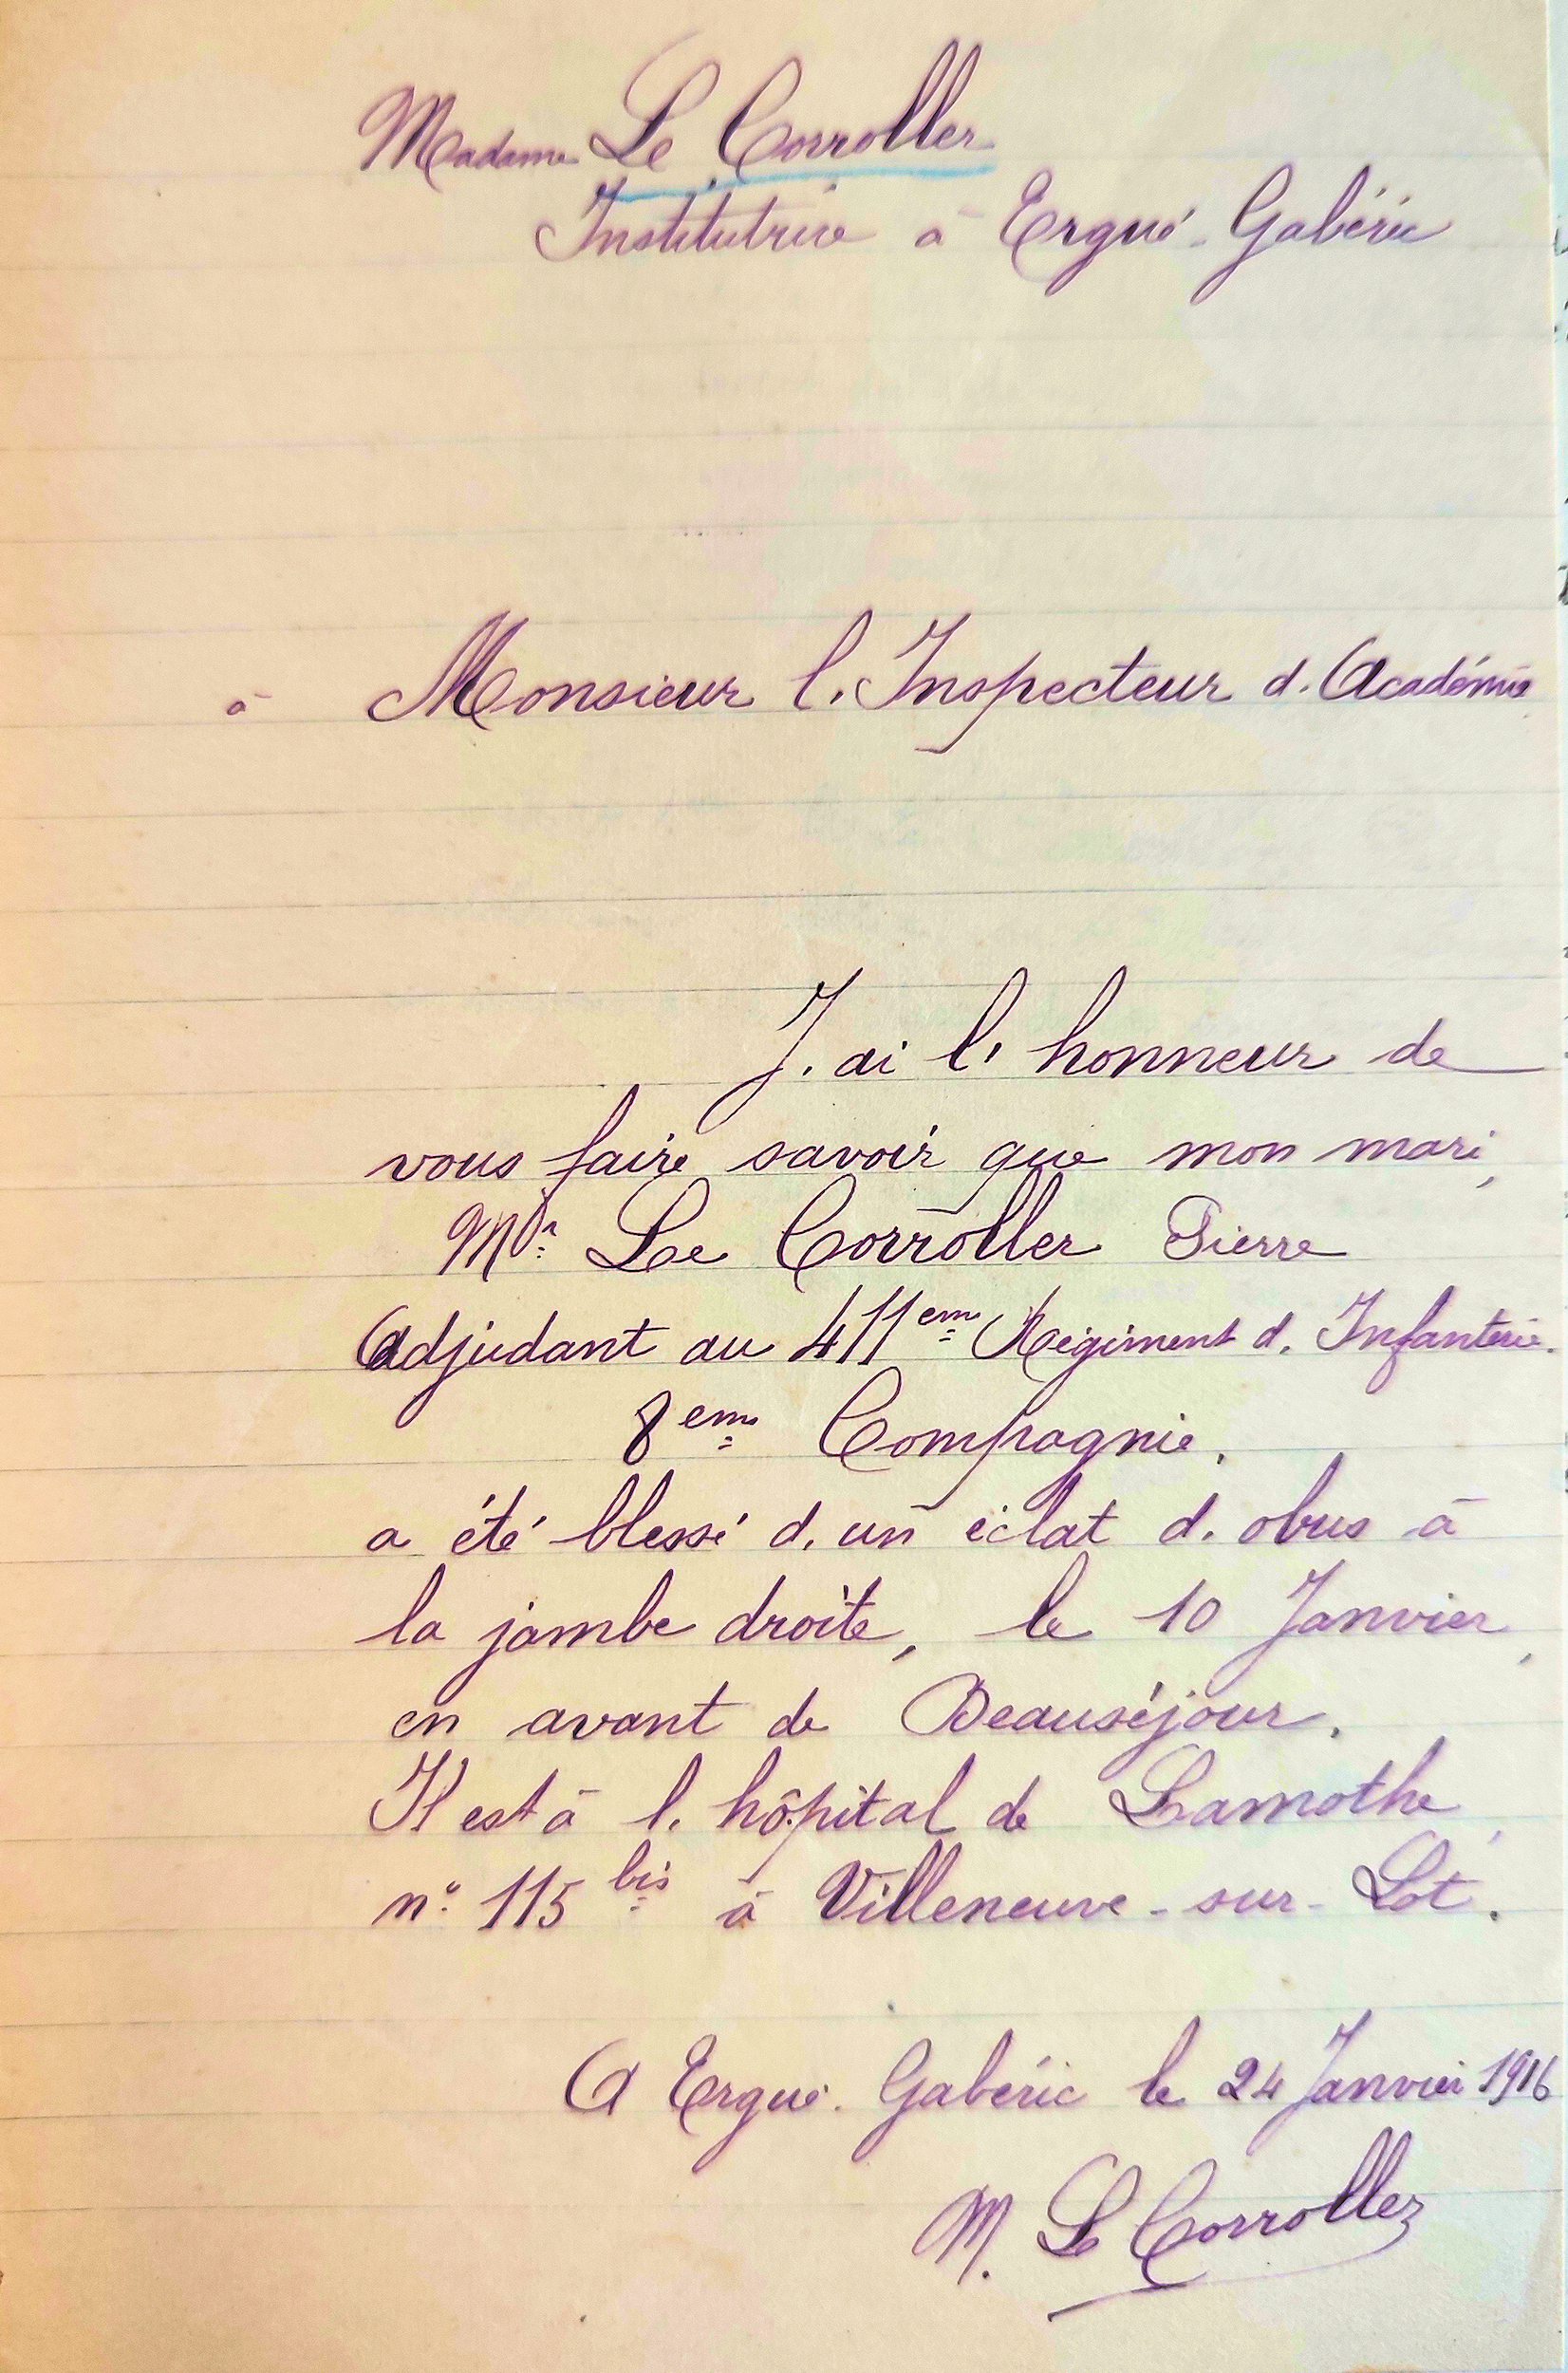 Madame Le Corroller
Institutrice à Ergué-Gabéric
à Monsieur l'Inspecteur d'Académie
J'ai l'honneur de
vous faire savoir que mon mari,
Mr Le Corroller Pierre
Adjudant au 411eme Régiment d'Infanterie.
8eme Compagnie,
a été blessé d'un éclat d'obus à
la jambe droite, le 10 Janvier,
en avant de Beauséjour.
Il est à l'hôpital de Lamothe,
n° 115 bis à Villeneuve-sur-Lot.
A Ergué-Gabéric le 24 Janvier 1916
M. Le Corroller